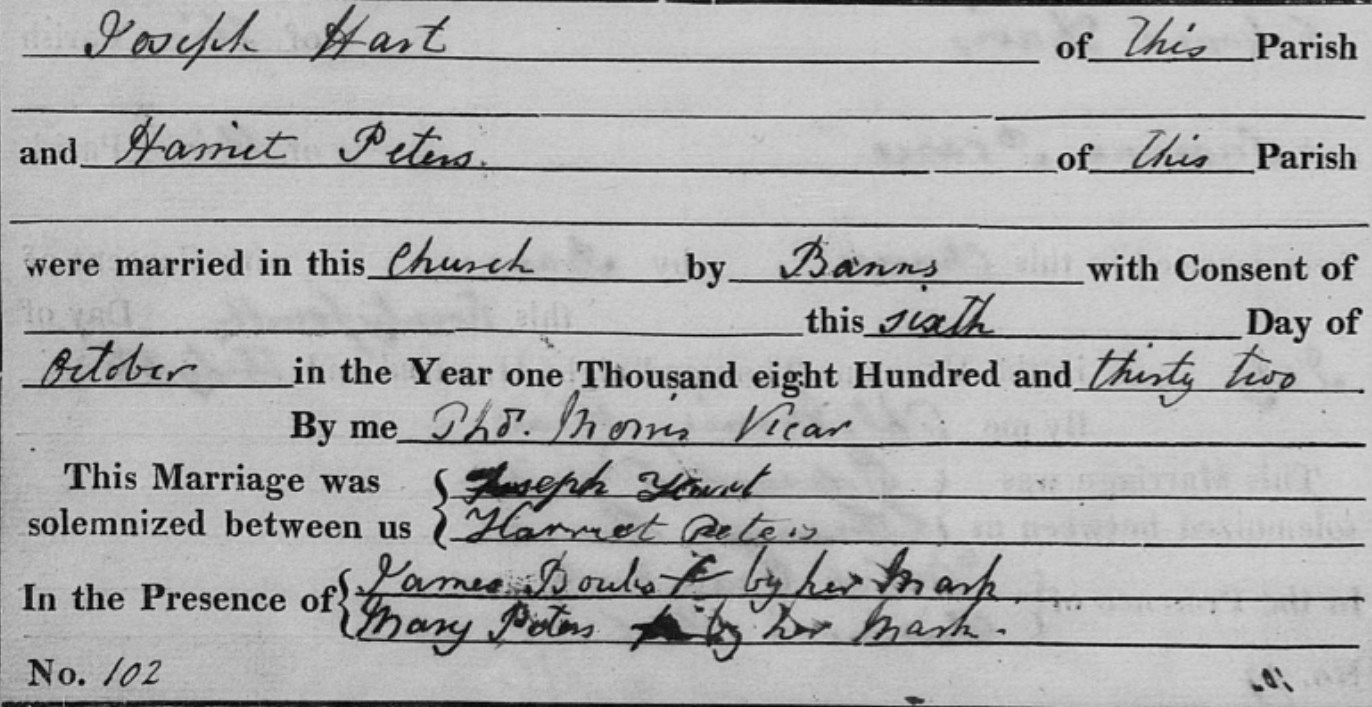 Joseph Hart of This Parish
and Harriet Peters. of This Parish
were married in this Church by Banns with Consent of
this sixth Day of
October in the Year one Thousand eight Hundred and thirty two
By me Thos. Morris Vicar
This Marriage was Joseph
solemnized between us Harriet Peters
In the Presence of James by her Mark
Mary Peters by her Mark.
No. 102